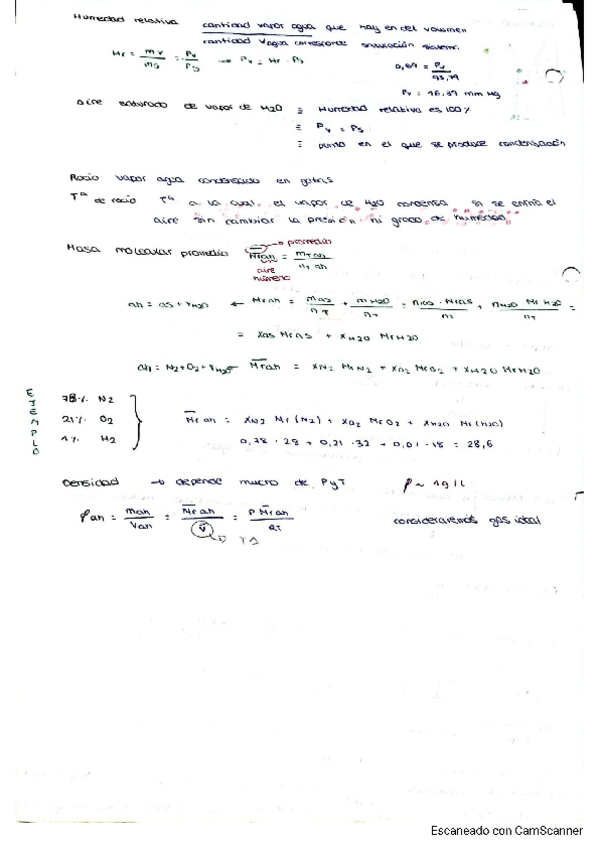 Humedad relativa cantidad vapor agua que hay en del volumen
cantidad Vagua corresponde saturación sistema.
Hr = mv/ms = Pv/Ps → Pv = Hr · Ps
Pv = 46.89 mm Hg
aire saturado de vapor de H2O ≡ Humedad relativa es 100%
≡ Pv = Ps
≡ punto en el que se produce condensación
Rocío vapor agua condensado en gotas
Tª de rocío Tª a la cual el vapor de H2O condensa si se enfría el
aire sin cambiar la presión ni grado de humedad.
Masa molecular promedio M̅r ah = mT ah/nT ah → promedio
aire
húmero
ah = as + vH2O ← M̅r ah = mas/nT + mH2O/nT = nas · Mr as/nT + nH2O Mr H2O/nT =
= xas Mr as + xH2O Mr H2O
ah = N2 + O2 + vH2O ← M̅r ah = xN2 Mr N2 + xO2 Mr O2 + xH2O Mr H2O
EJEMPLO
78% N2
21% O2
1% H2
M̅r ah = xN2 Mr (N2) + xO2 Mr O2 + xH2O Mr (H2O)
0,78 · 28 + 0,21 · 32 + 0,01 · 18 = 28,6
Densidad → depende mucho de P y T ρ ~ 1 g/L
ρah = mah/Vah = M̅r ah/V̅ = P M̅r ah/RT consideraremos gas ideal
Escaneado con CamScanner